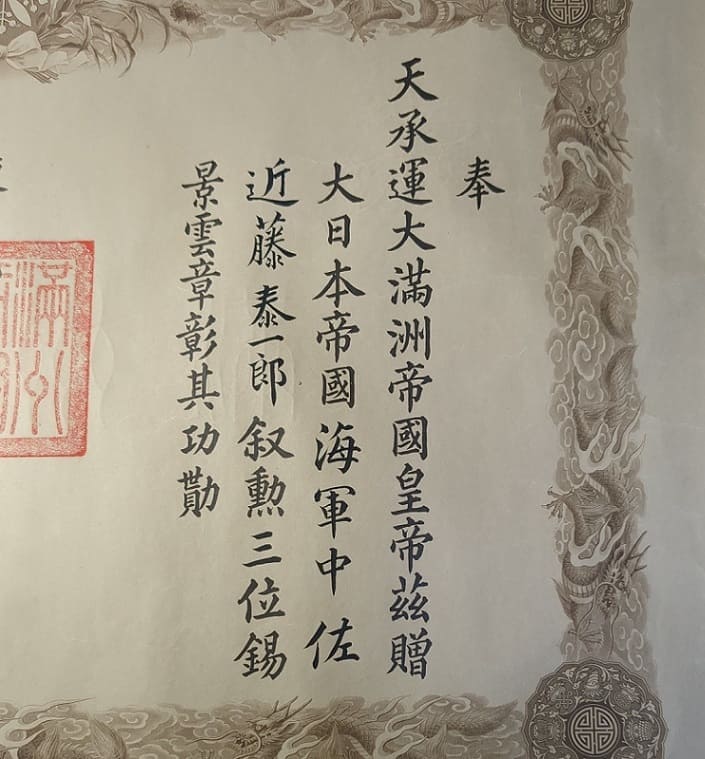 奉
天承運大滿洲帝國皇帝茲贈
大日本帝國海軍中佐
近藤泰一郎叙勳三位錫
景雲章彰其功勩